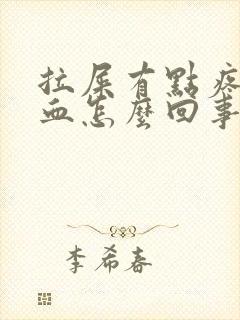 拉屎有點疼
血怎麼回事
李希春